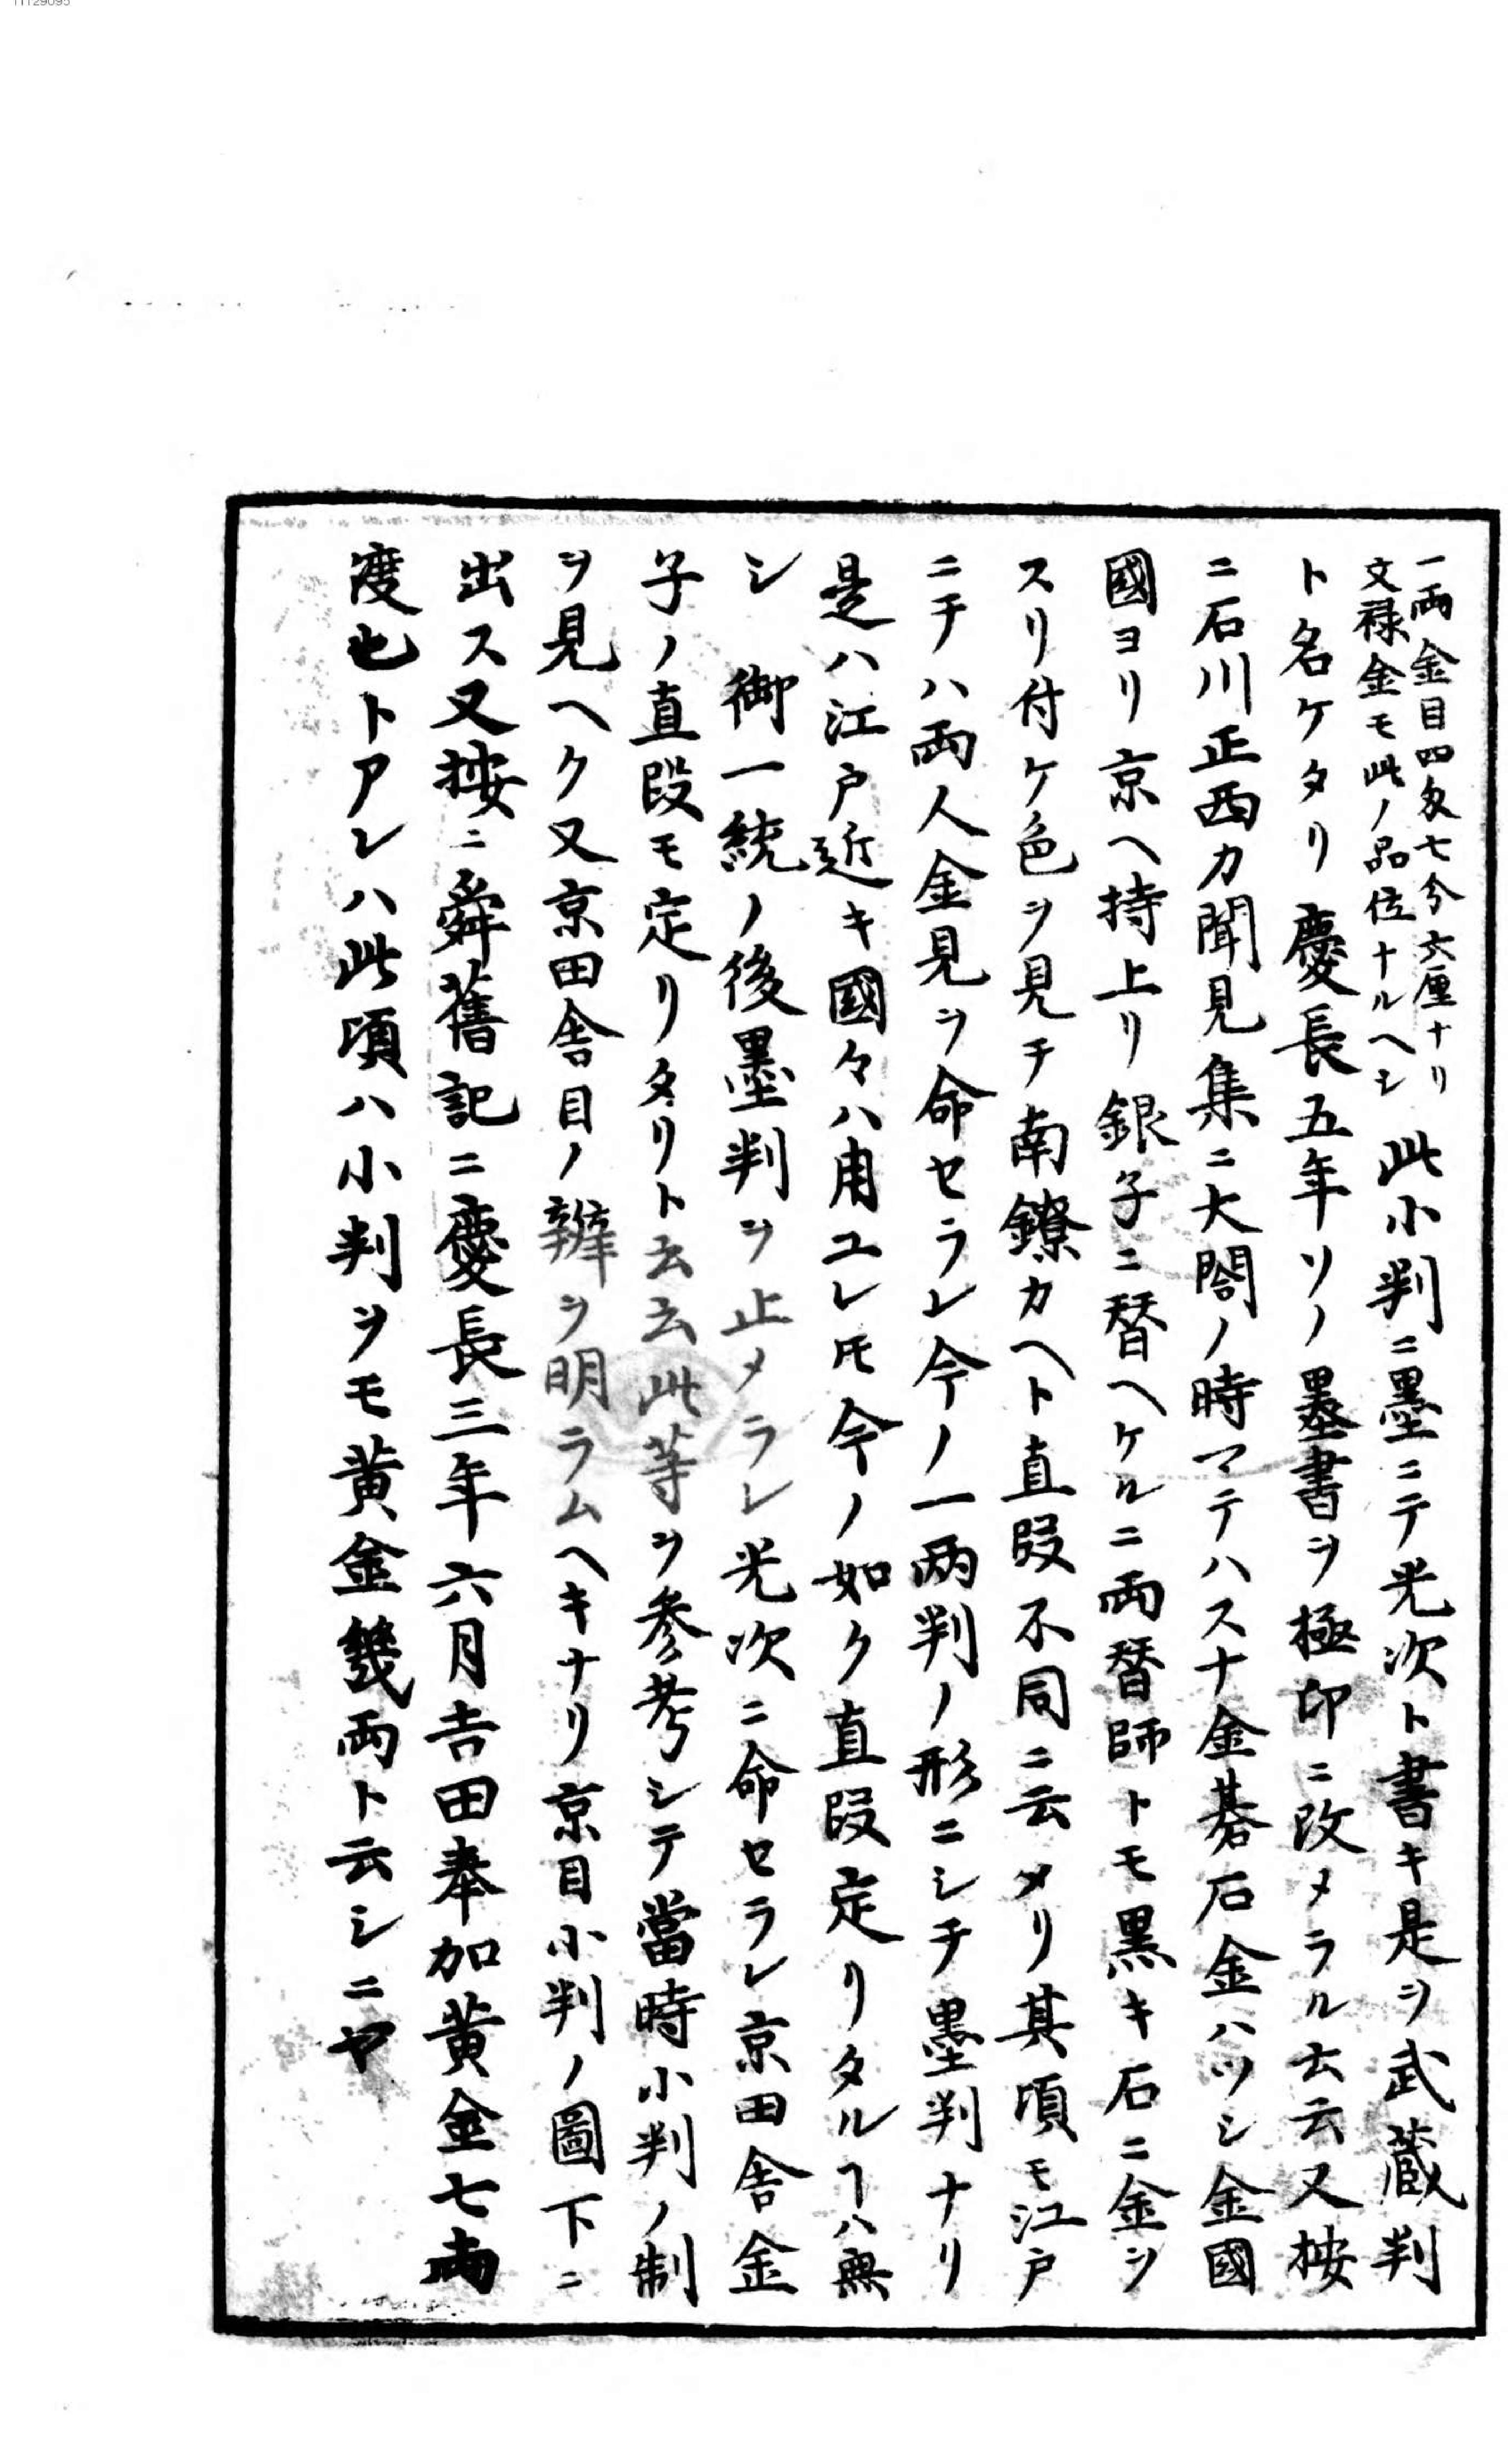 一両金目四匁七分六厘ナリ
文禄金モ此ノ品位ナルヘシ
此小判ニ墨ニテ光次ト書キ是ヲ武蔵判
ト名ケタリ慶長五年ソノ墨書ヲ極印ニ改メラル云云又按
ニ石川正西カ聞見集ニ大閤ノ時マテハスナ金碁石金ハツシ金國
國ヨリ京ヘ持上リ銀子ニ替ヘケルニ両替師トモ黒キ石ニ金ヲ
スリ付ケ色ヲ見チ南鐐カヘト直段不同ニ云メリ其頃モ江戸
ニチハ両人金見ヲ命セラレ今ノ一两判ノ形ニシチ墨判ナリ
是ハ江戸近キ國々ハ用ユレ𪜈今ノ如ク直段定リタルヿハ無
シ　御一統ノ後墨判ヲ止メラレ光次ニ命セラレ京田舎金
子ノ直段モ定リタリト云云此等ヲ参考シテ當時小判ノ制
ヲ見ヘク又京田舎目ノ辨ヲ明ラムヘキナリ京目小判ノ圖下ニ
出ス又按ニ舜舊記ニ慶長三年六月吉田奉加黄金七両
渡也トアレハ此頃ハ小判ヲモ黄金幾両ト云シニヤ